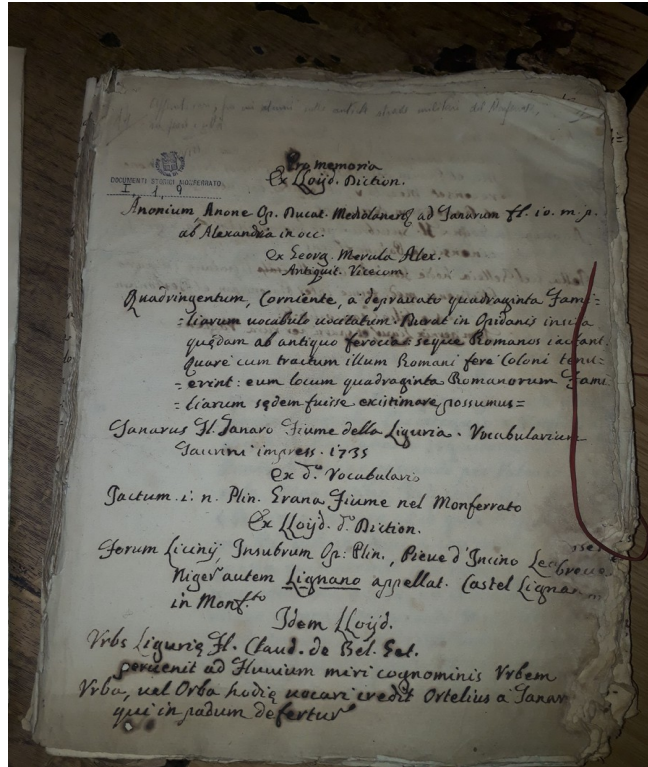 Pro memoria
Ex Lloijd. Diction.
DOCUMENTI STORICI MONFERRATO
I 1, 9
Anonium Anone Op. Ducat. Mediolanens ad Tanarum fl. 10. m. p.
ab Alexandria in occ.
ex Georg. Merula Alex.
Antiquit. Vicecom.
Quadringentum, Corniente, a depravato quadraginta Fami=
=liarum vocabulo vocitatum. Durat in Opidanis insita
quędam ab antiquo ferocia: seque Romanos iactant.
Quare cum tractum illum Romani fere Coloni tenu=
=erint: eum locum quadraginta Romanorum Fami
=liarum sędem fuisse existimare possumus=
Tanarus Fl. Tanaro Fiume della Liguria. Vocabularium
Taurini impress. 1735
Ex d.º Vocabulario
Tactum. i. n. Plin. Evana Fiume nel Monferrato
Ex Lloijd. d.º Diction.
Forum Licinij Insubrum Op: Plin., Pieve d'Incino
Niger autem Lignano appellat. Castel
in Monf.to
Idem Lloijd.
Vrbs Ligurię Fl. Claud. de Bel. Get.
pervenit ad Fluvium miri cognominis Vrbem
Vrba, vel Orba hodie vocari credit Ortelius a
qui in padum defertur